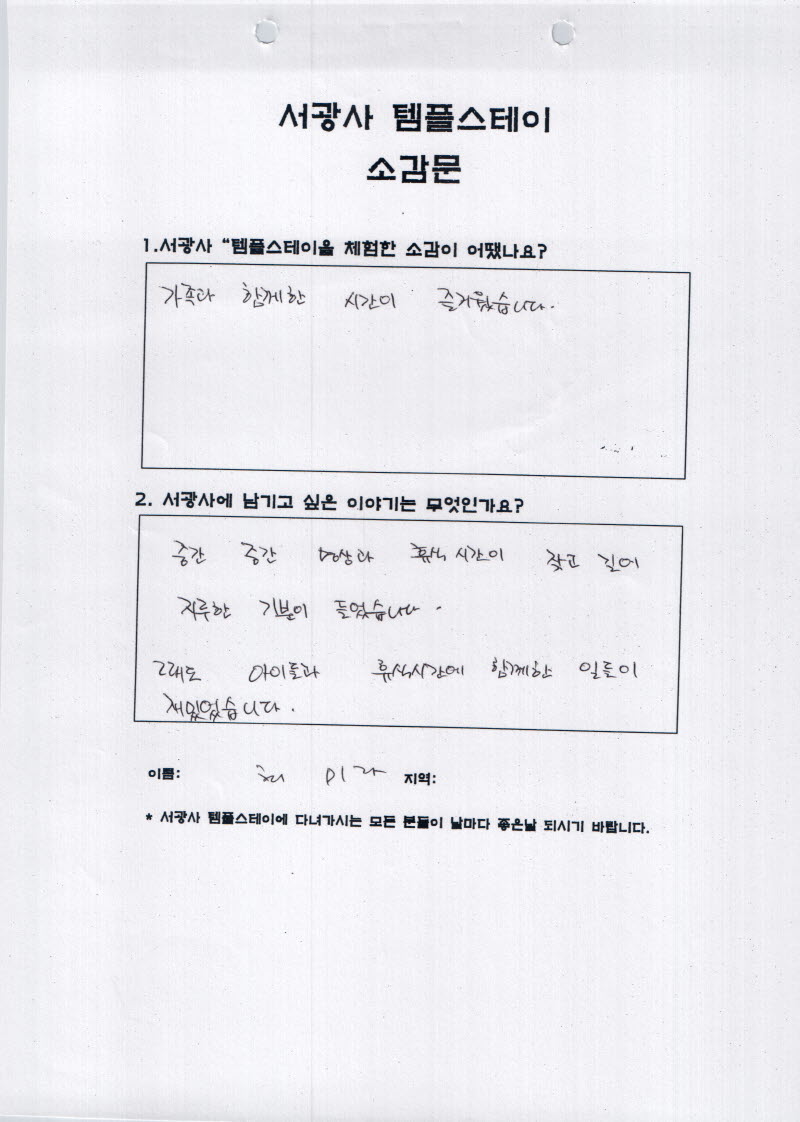 서광사 템플스테이
소감문
1.서광사 “템플스테이을 체험한 소감이 어땠나요?
가족과 함께한 시간이 즐거웠습니다.
2. 서광사에 남기고 싶은 이야기는 무엇인가요?
중간 중간 명상과 휴식 시간이 잦고 길어
지루한 기분이 들었습니다.
그래도 아이들과 휴식시간에 함께한 일들이
재밌었습니다.
이름: 최 미라 지역:
* 서광사 템플스테이에 다녀가시는 모든 분들이 날마다 좋은날 되시기 바랍니다.